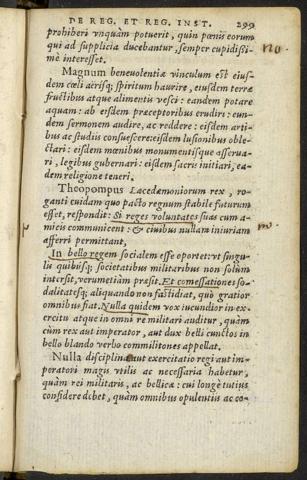 DE REG. ET REG. INST. 299
prohiberi vnquam potuerit, quin pœnis eorum
qui ad supplicia ducebantur, semper cupidissi-
mè interesset.
Magnum beneuolentiæ vinculum est eius-
dem cœli aërisq; spiritum haurire, eiusdem terræ
fructibus atque alimentis vesci: eandem potare
aquam: ab eisdem præceptoribus erudiri: eun-
dem sermonem audire, ac reddere: eisdem arti-
bus ac studiis consuescere: eisdem lusionibus oble-
ctari: eisdem mœnibus monumentisque asserua-
ri, legibus gubernari: eisdem sacris initiari, ea-
dem religione teneri.
Theopompus Lacedæmoniorum rex, ro-
ganti cuidam quo pacto regnum stabile futurum
esset, respondit: Si reges voluntates suas cum a-
micis communicent: & ciuibus nullam iniuriam
afferri permittant,
In bello regem socialem esse oportet: vt singu-
lis quibusq; societatibus militaribus non solùm
intersit, verumetiam præsit. Et comessationes so-
dalitatesq; aliquando non fastidiat, quò gratior
omnibus fiat. Nulla quidem vox iucundior in ex-
ercitu atque in omni re militari auditur, quàm
cùm rex aut imperator, aut dux belli cunctos in
bello blando verbo commilitones appellat.
Nulla disciplina aut exercitatio regi aut im-
peratori magis vtilis ac necessaria habetur,
quàm rei militaris, ac bellicæ: cui longè tutius
confidere debet, quàm omnibus opulentiis ac co-